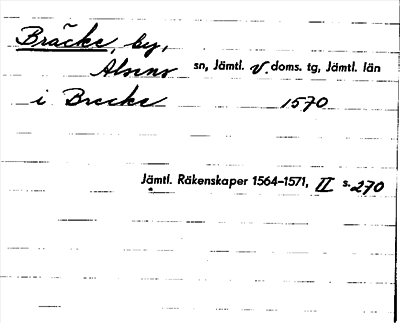 Bräcke, by,
Alsens sn, Jämtl. v. doms. tg, Jämtl. län
i Brecke 1570
Jämtl. Räkenskaper 1564–1571, II s. 270